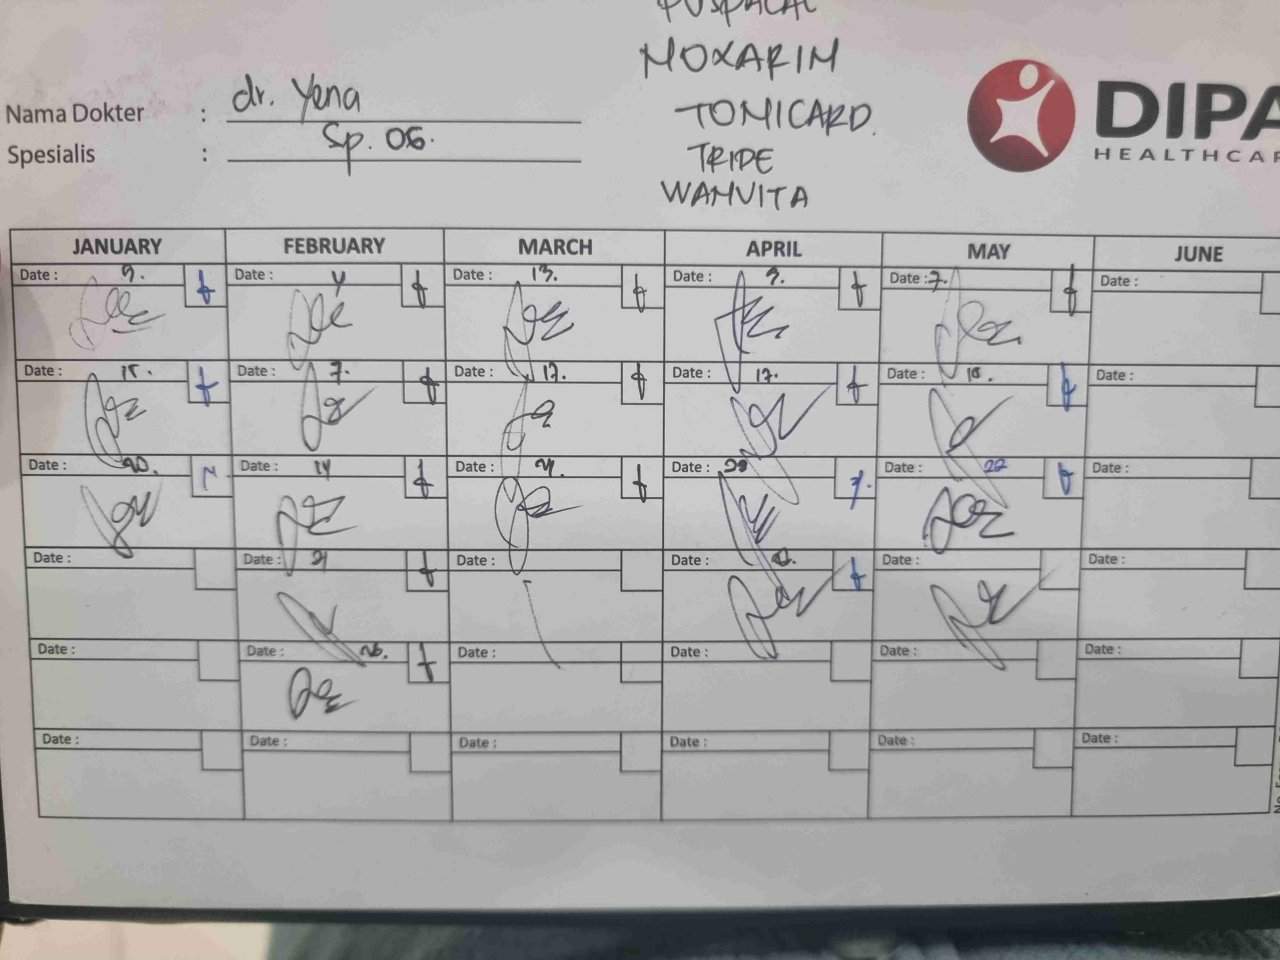 MOXARIM
Nama Dokter : dr. Yena
TOMICARD.
DIPA
HEALTHCAR
Spesialis : Sp. OG.
TRIDE
WAMVITA
JANUARY FEBRUARY MARCH APRIL MAY JUNE
Date : 9. Date : 4 Date : 13. Date : 9. Date : 7. Date :
Date : 15. Date : 7. Date : 17. Date : 17. Date : 15. Date :
Date : 20. Date : 14 Date : 21. Date : Date : 22 Date :
Date : Date : 21 Date : Date : Date : Date :
Date : Date : 26. Date : Date : Date : Date :
Date : Date : Date : Date : Date : Date :